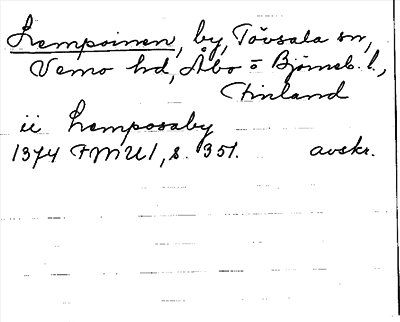 Lempoinen, by, Tövsala sn,
Vemo hd, Åbo o Björneb. l.,
Finland
ii Lemposaby
1374 FMU 1, s. 351. avskr.